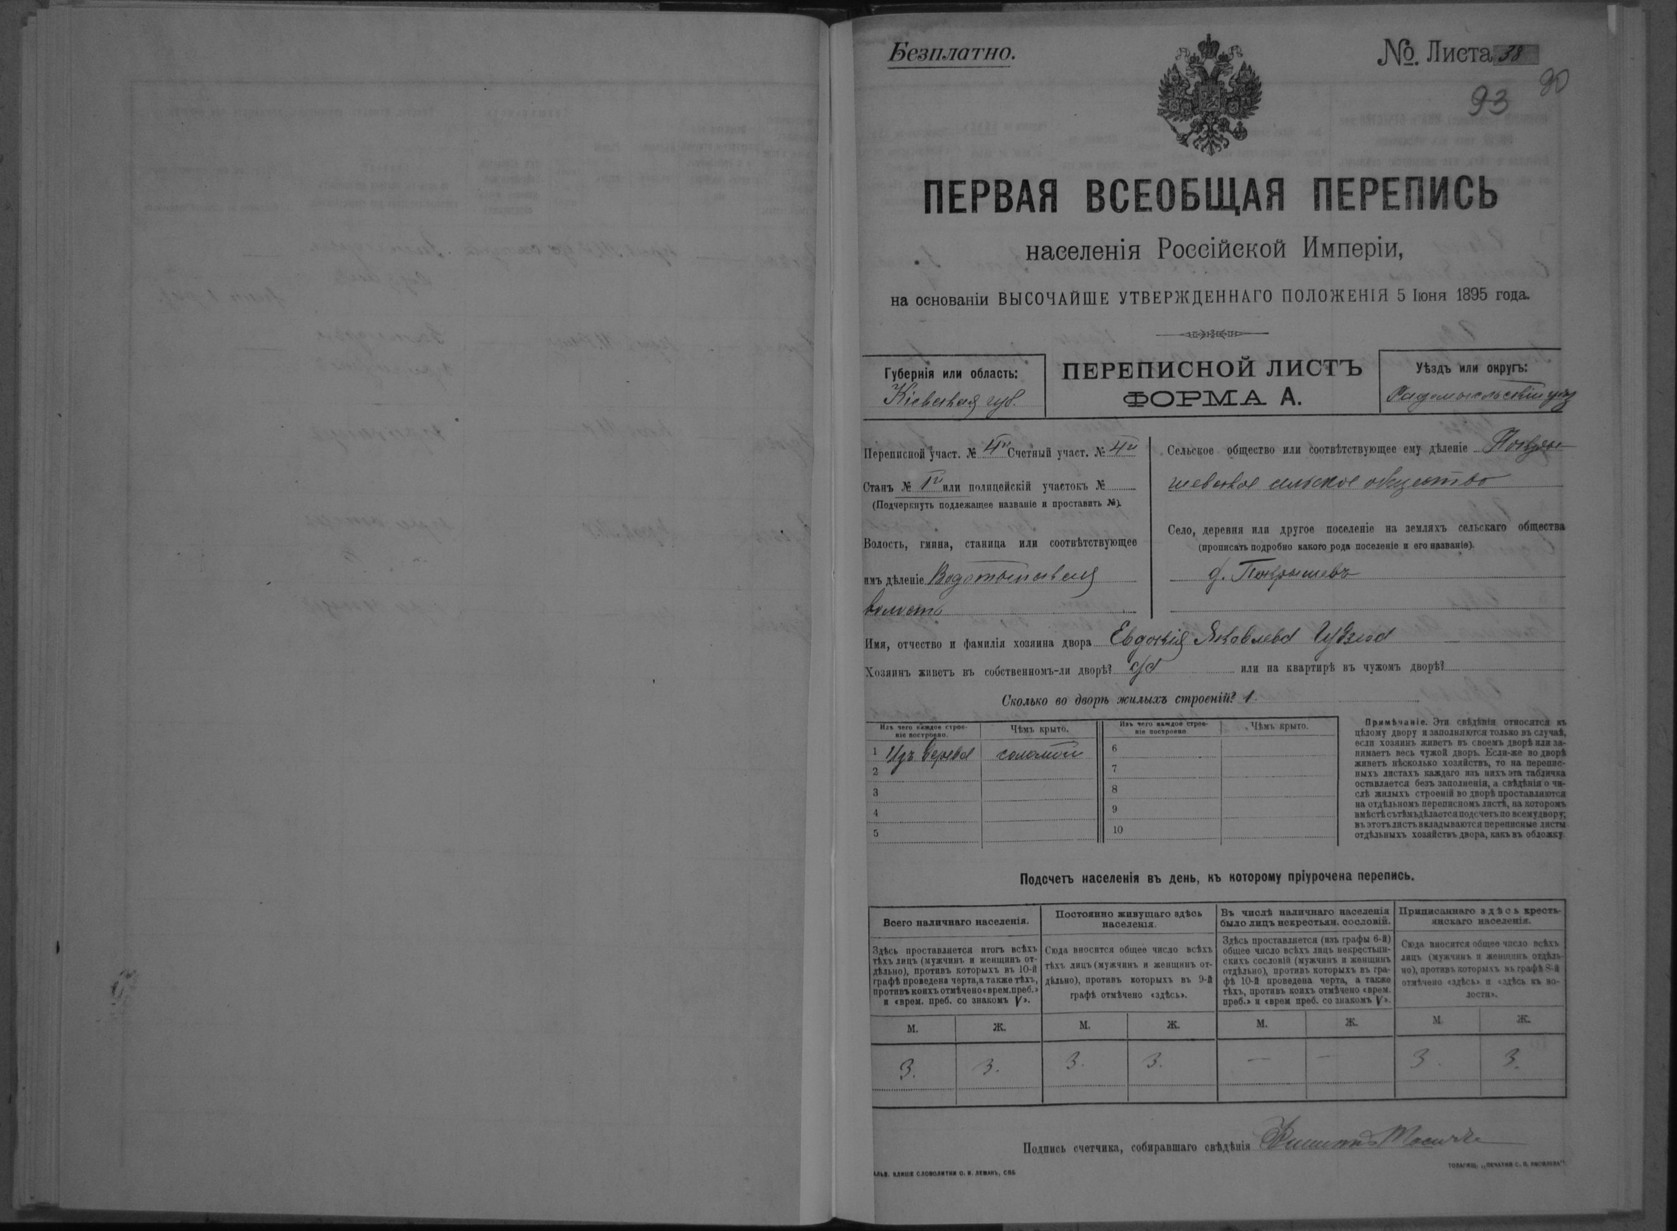 Безплатно.
№ Листа 38
93
90
ПЕРВАЯ ВСЕОБЩАЯ ПЕРЕПИСЬ
населенія Россійской Имперіи,
на основаніи ВЫСОЧАЙШЕ УТВЕРЖДЕННАГО ПОЛОЖЕНІЯ 5 Іюня 1895 года.
Губернія или область:
Кіевская губ.
ПЕРЕПИСНОЙ ЛИСТЪ
ФОРМА А.
Уѣздъ или округъ:
Радомысльскій уѣз
Переписной участ. № 4й Счетный участ. № 4й
Станъ № 1й или полицейскій участокъ №
(Подчеркнуть подлежащее названіе и проставить №).
Волость, гмина, станица или соотвѣтствующее
имъ дѣленіе Водотыйская
волость
Сельское общество или соотвѣтствующее ему дѣленіе Покры-
шевское сельское общество
Село, деревня или другое поселеніе на земляхъ сельскаго общества
(прописать подробно какого рода поселеніе и его названіе).
д. Покрышевъ
Имя, отчество и фамилія хозяина двора Евдокія Яковлева
Хозяинъ живетъ въ собственномъ-ли дворѣ? да или на квартирѣ въ чужомъ дворѣ?
Сколько во дворѣ жилыхъ строеній? 1.
Изъ чего каждое строе-
ніе построено.
Чѣмъ крыто.
Изъ чего каждое строе-
ніе построено.
Чѣмъ крыто.
1 Изъ дерева соломой 6
2 7
3 8
4 9
5 10
Примѣчаніе. Эти свѣдѣнія относятся къ
цѣлому двору и заполняются только въ случаѣ,
если хозяинъ живетъ въ своемъ дворѣ или за-
нимаетъ весь чужой дворъ. Если-же во дворѣ
живетъ нѣсколько хозяйствъ, то на перепис-
ныхъ листахъ каждаго изъ нихъ эта табличка
оставляется безъ заполненія, а свѣдѣнія о чи-
слѣ жилыхъ строеній во дворѣ проставляются
на отдѣльномъ переписномъ листѣ, на которомъ
вмѣстѣ съ тѣмъ дѣлается подсчетъ по всему двору;
въ этотъ листъ вкладываются переписные листы
отдѣльныхъ хозяйствъ двора, какъ въ обложку.
Подсчетъ населенія въ день, къ которому пріурочена перепись.
Всего наличнаго населенія.
Здѣсь проставляется итогъ всѣхъ
тѣхъ лицъ (мужчинъ и женщинъ от-
дѣльно), противъ которыхъ въ 10-й
графѣ проведена черта, а также тѣхъ,
противъ коихъ отмѣчено «врем. преб.»
и «врем. преб. со знакомъ V».
Постоянно живущаго здѣсь
населенія.
Сюда вносится общее число всѣхъ
тѣхъ лицъ (мужчинъ и женщинъ от-
дѣльно), противъ которыхъ въ 9-й
графѣ отмѣчено «здѣсь».
Въ числѣ наличнаго населенія
было лицъ некрестьян. сословій.
Здѣсь проставляется (изъ графы 6-й)
общее число всѣхъ лицъ некрестьян-
скихъ сословій (мужчинъ и женщинъ
отдѣльно), противъ которыхъ въ гра-
фѣ 10-й проведена черта, а также
тѣхъ, противъ коихъ отмѣчено «врем.
преб.» и «врем преб. со знакомъ V».
Приписаннаго здѣсь кресть-
янскаго населенія.
Сюда вносится общее число всѣхъ
лицъ (мужчинъ и женщинъ отдѣль-
но), противъ которыхъ въ графѣ 8-й
отмѣчено «здѣсь» и «здѣсь въ во-
лости».
М. Ж. М. Ж. М. Ж. М. Ж.
3. 3. 3. 3. — — 3. 3.
Подпись счетчика, собиравшаго свѣдѣнія